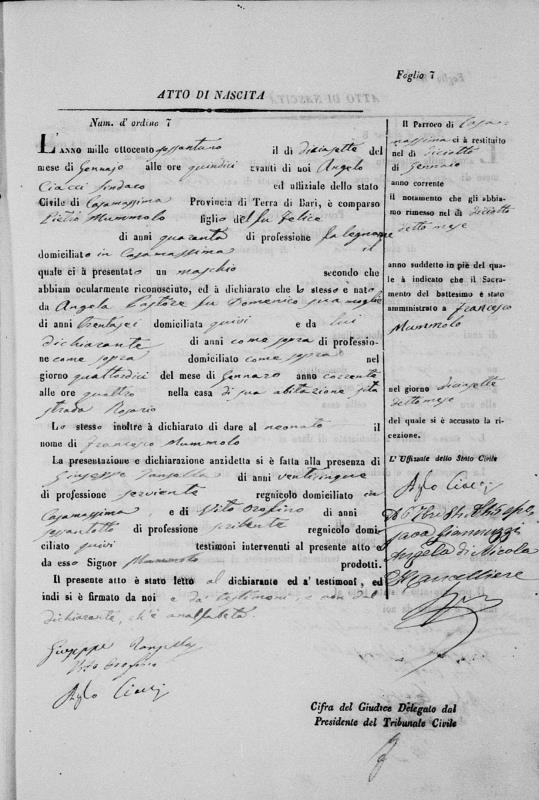 Foglio 7
ATTO DI NASCITA
Num. d'ordine 7
L'ANNO mille ottocento sessantuno il di diciasette del
mese di Gennajo alle ore quindici avanti di noi Angelo
Ciacci Sindaco ed uffiziale dello stato
Civile di Casamassima Provincia di Terra di Bari, è comparso
Pietro Mummolo figlio del fu Felice
di anni quaranta di professione falegname
domiciliato in Casamassima il
quale ci à presentato un maschio secondo che
abbiam ocularmente riconosciuto, ed à dichiarato che lo stesso è nato
da Angela Pastore fu Domenico sua moglie
di anni trentasei domiciliata quivi e da lui
dichiarante di anni come sopra di professio-
ne come sopra domiciliato come sopra nel
giorno quattordici del mese di Gennaro anno corrente
alle ore quattro nella casa di sua abitazione sita
strada Rosario
Lo stesso inoltre à dichiarato di dare al neonato il
nome di Francesco Mummolo
La presentazione e dichiarazione anzidetta si è fatta alla presenza di
Giuseppe di anni venticinque
di professione serviente regnicolo domiciliato in
Casamassima, e di Vito Orofino di anni
sessantotto di professione scribente regnicolo domi-
ciliato quivi testimoni intervenuti al presente atto e
da esso Signor Mummolo prodotti.
Il presente atto è stato letto al dichiarante ed a' testimoni, ed
indi si è firmato da noi e da' testimoni, e non dal
dichiarante, ch'è analfabeta.
Giuseppe
Vito Orofino
Aglo Ciacci
Il Parroco di Casa-
massima ci à restituito
nel di diciotto
di Gennaio
anno corrente
il notamento che gli abbia-
mo rimesso nel di diciotto
detto mese
anno suddetto in piè del qua-
le à indicato che il Sacra-
mento del battesimo è stato
amministrato a Francesco
Mummolo
nel giorno diciasette
detto mese
del quale si è accusato la ri-
cezione.
L'Uffiziale dello Stato Civile
Aglo Ciacci
Giannuzzi
Angela di Nicola
Cancelliere
Cifra del Giudice Delegato dal
Presidente del Tribunale Civile